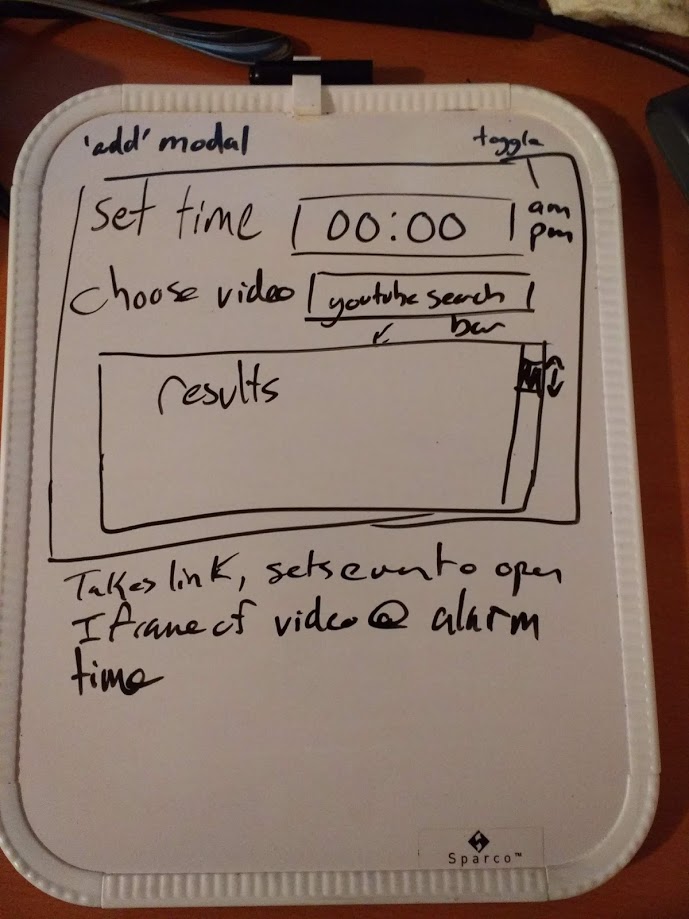 'add' modal toggle
set time 00:00 am
pm
Choose video youtube search
bar
results
Takes link, sets event to open
Iframe of video @ alarm
time
Sparco™